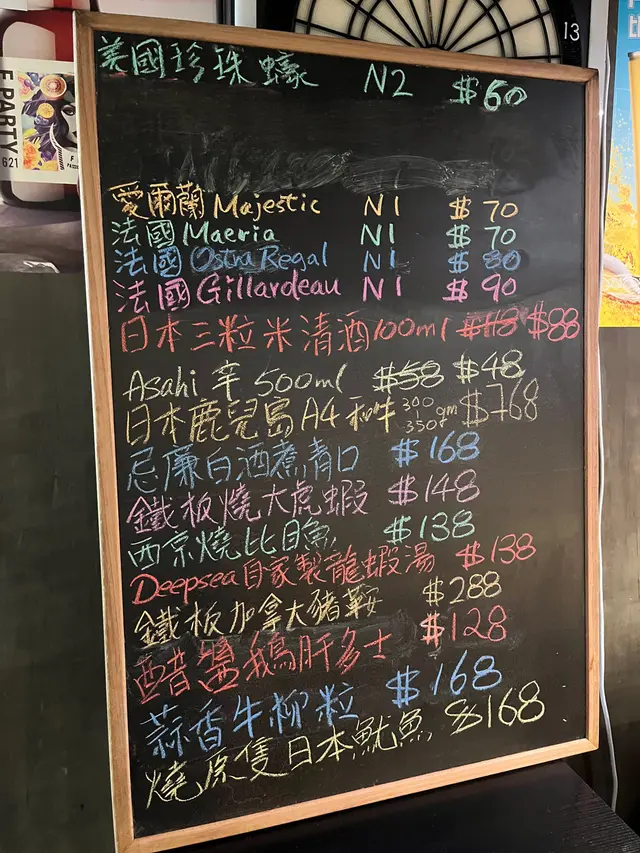 13
F PARTY
621
美國珍珠蠔 N2 $60
愛爾蘭 Majestic N1 $70
法國 Maeria N1 $70
法國 Ostra Regal N1 $80
法國 Gillardeau N1 $90
日本三粒米清酒100ml $118 $88
Asahi 辛 500ml $58 $48
日本鹿兒島A4和牛 300-350gm $768
忌廉白酒煮青口 $168
鐵板燒大虎蝦 $148
西京燒比目魚 $138
Deepsea自家製龍蝦湯 $138
鐵板加拿大豬鞍 $288
醋醬鵝肝多士 $128
蒜香牛柳粒 $168
燒原隻日本魷魚 $168